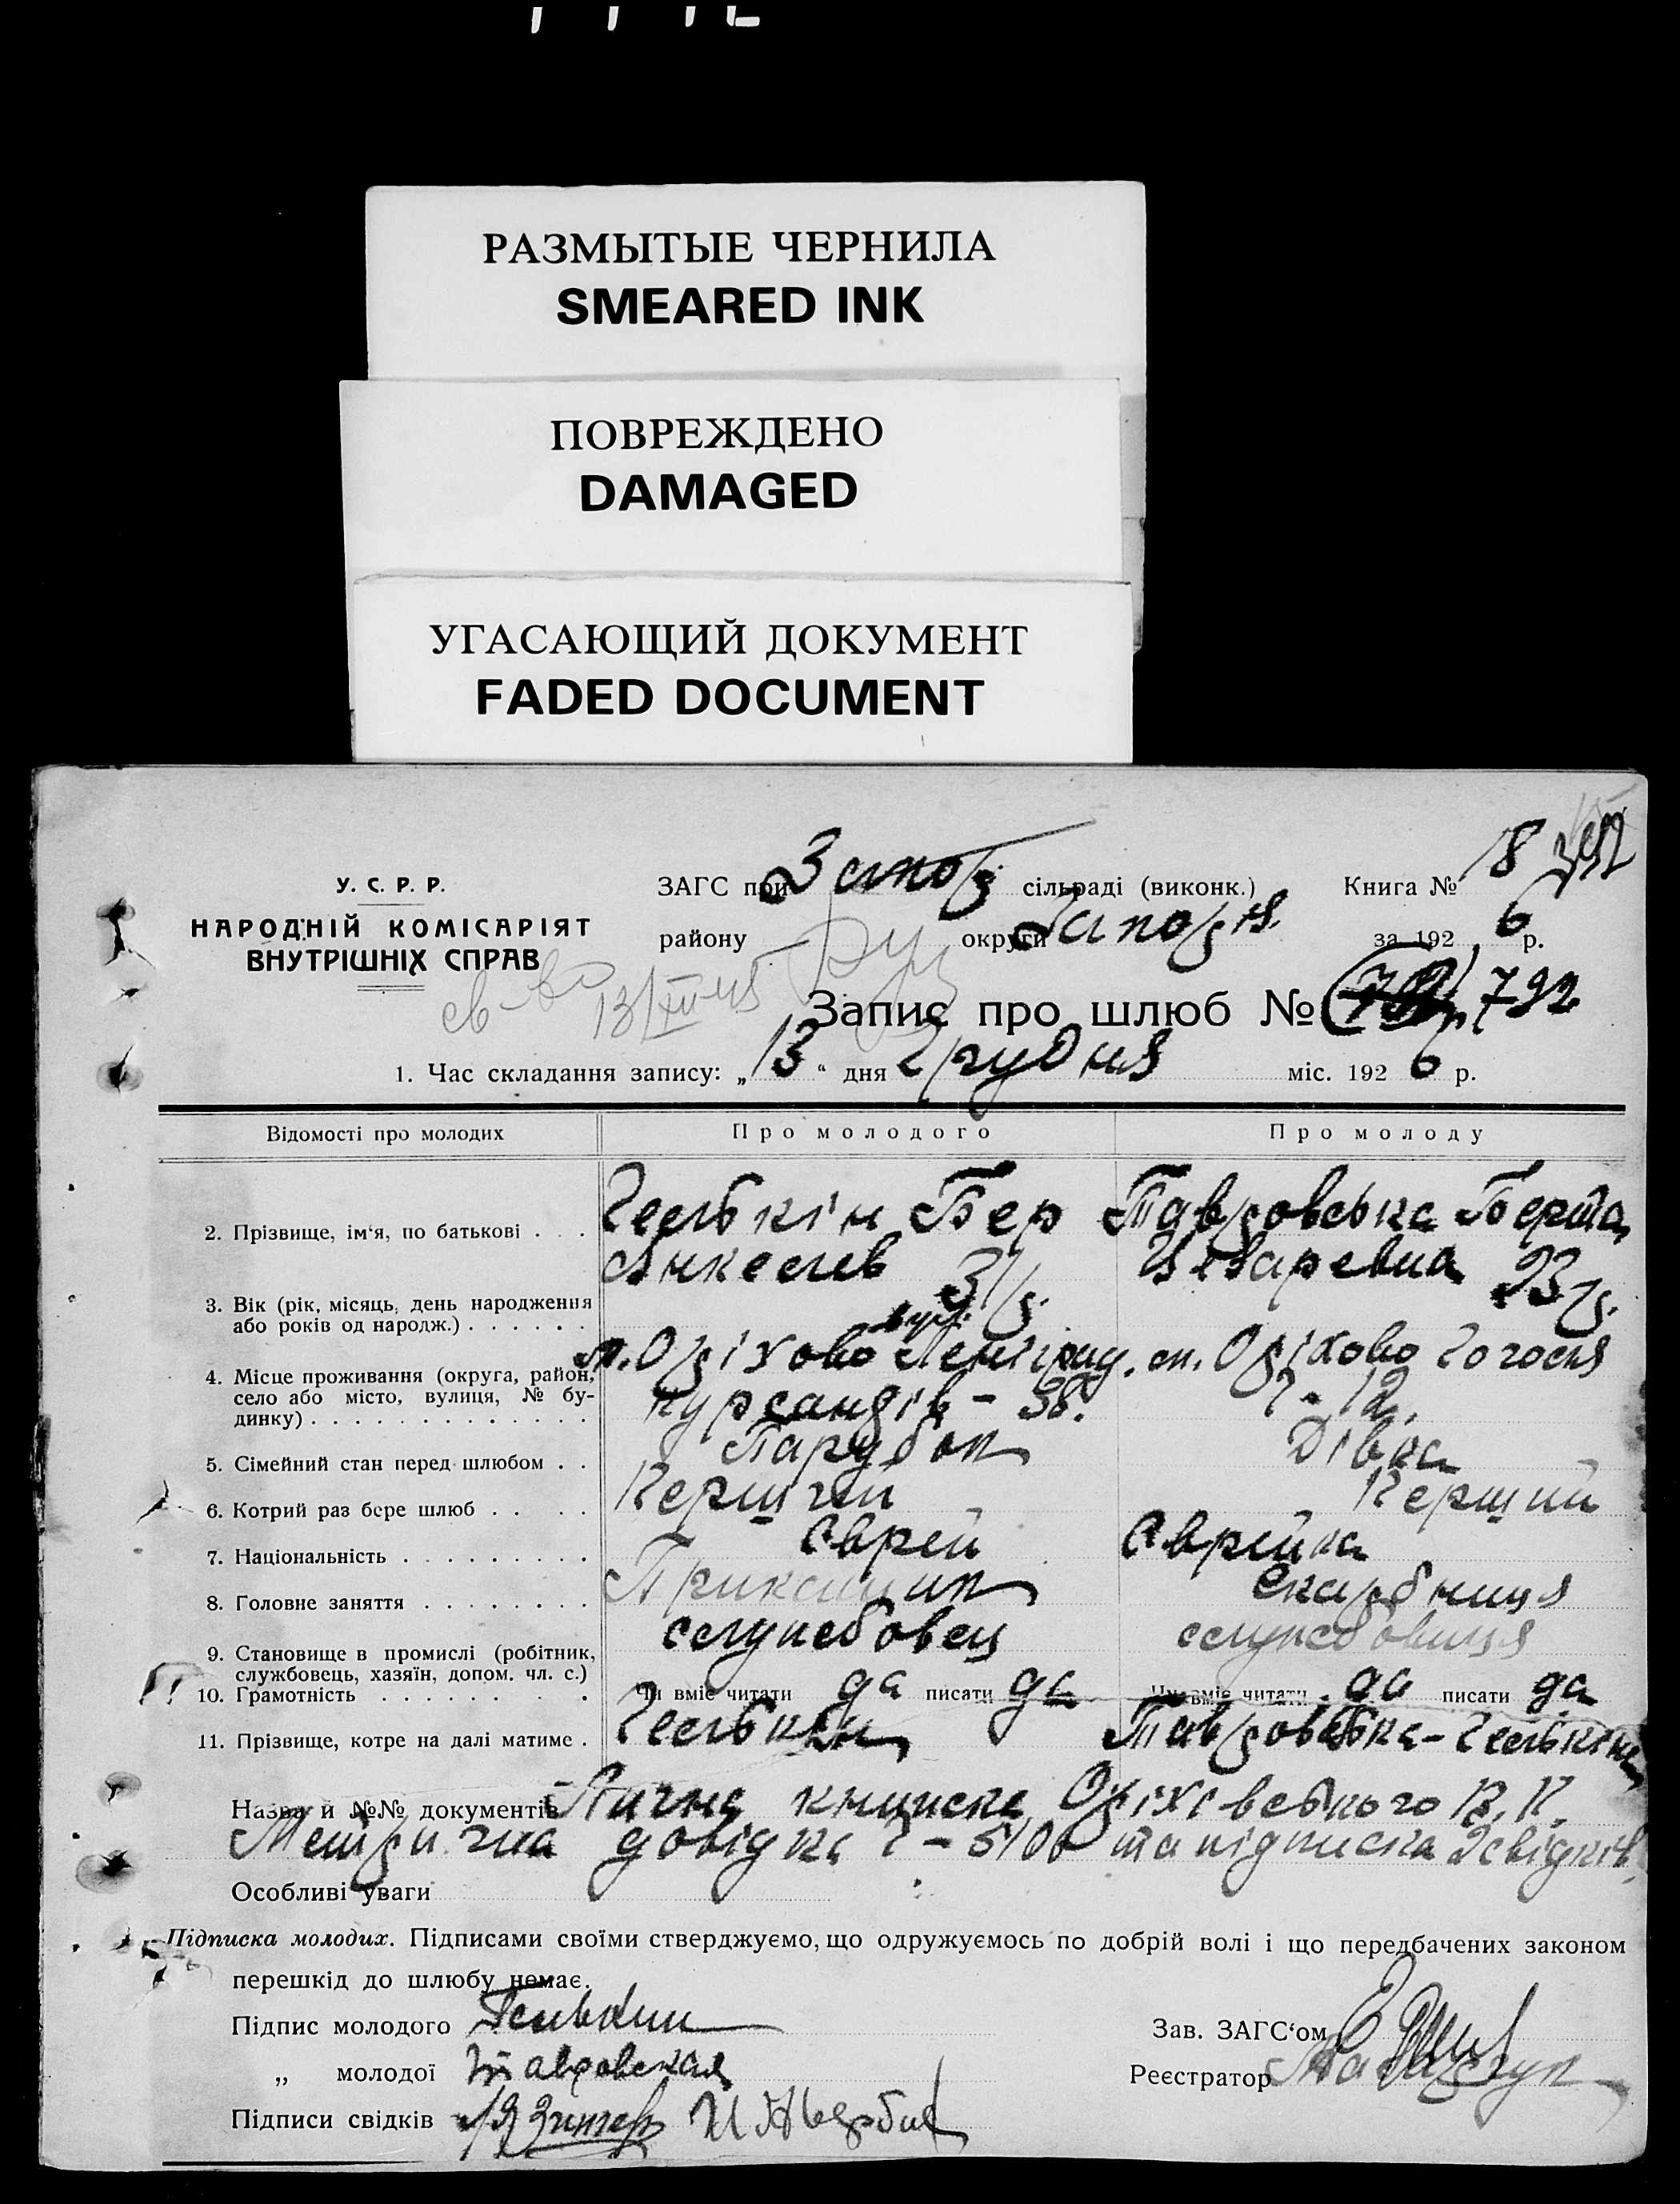 РАЗМЫТЫЕ ЧЕРНИЛА
SMEARED INK
ПОВРЕЖДЕНО
DAMAGED
УГАСАЮЩИЙ ДОКУМЕНТ
FADED DOCUMENT
У. С. Р. Р.
НАРОДНІЙ КОМІСАРІЯТ
ВНУТРІШНІХ СПРАВ
ЗАГС при Запоріз сільраді (виконк.) Книга № 18
району округи Запоріз за 192 6 р.
св-во 13/XII-45
Запис про шлюб № 792
1. Час складання запису: „ 13 “ дня Грудня міс. 192 6 р.
Відомості про молодих Про молодого Про молоду
2. Прізвище, ім‘я, по батькові . . . Гелькін Бер Тавровська Берта
3. Вік (рік, місяць, день народження або років од народж.) . . . . . . 31 р. 23 р.
4. Місце проживання (округа, район, село або місто, вулиця, № будинку) . . . . . . . . . . . . . м. Оріхово вул. Ленінград. м. Оріхово Гоголя
Курсантів - 38. 12.
5. Сімейний стан перед шлюбом . . Парубок Дівка
6. Котрий раз бере шлюб . . . . Перший Перший
7. Національність . . . . . . . . . Єврей Єврейка
8. Головне заняття . . . . . . . . Прикащик Скарбниця
9. Становище в промислі (робітник, службовець, хазяїн, допом. чл. с.) службовец службовиця
10. Грамотність . . . . . . . . Чи вміє читати да писати да Чи вміє читати да писати да
11. Прізвище, котре на далі матиме . Гелькін Тавровська-Гелькіна
Назва й №№ документів Лична книжка Оріхівського В. К.
Метрична довідка та підписка 2 свідків
Особливі уваги
Підписка молодих. Підписами своїми стверджуємо, що одружуємось по добрій волі і що передбачених законом
перешкід до шлюбу немає.
Підпис молодого Гелькин Зав. ЗАГС‘ом
„ молодої Тавровская Реєстратор
Підписи свідків